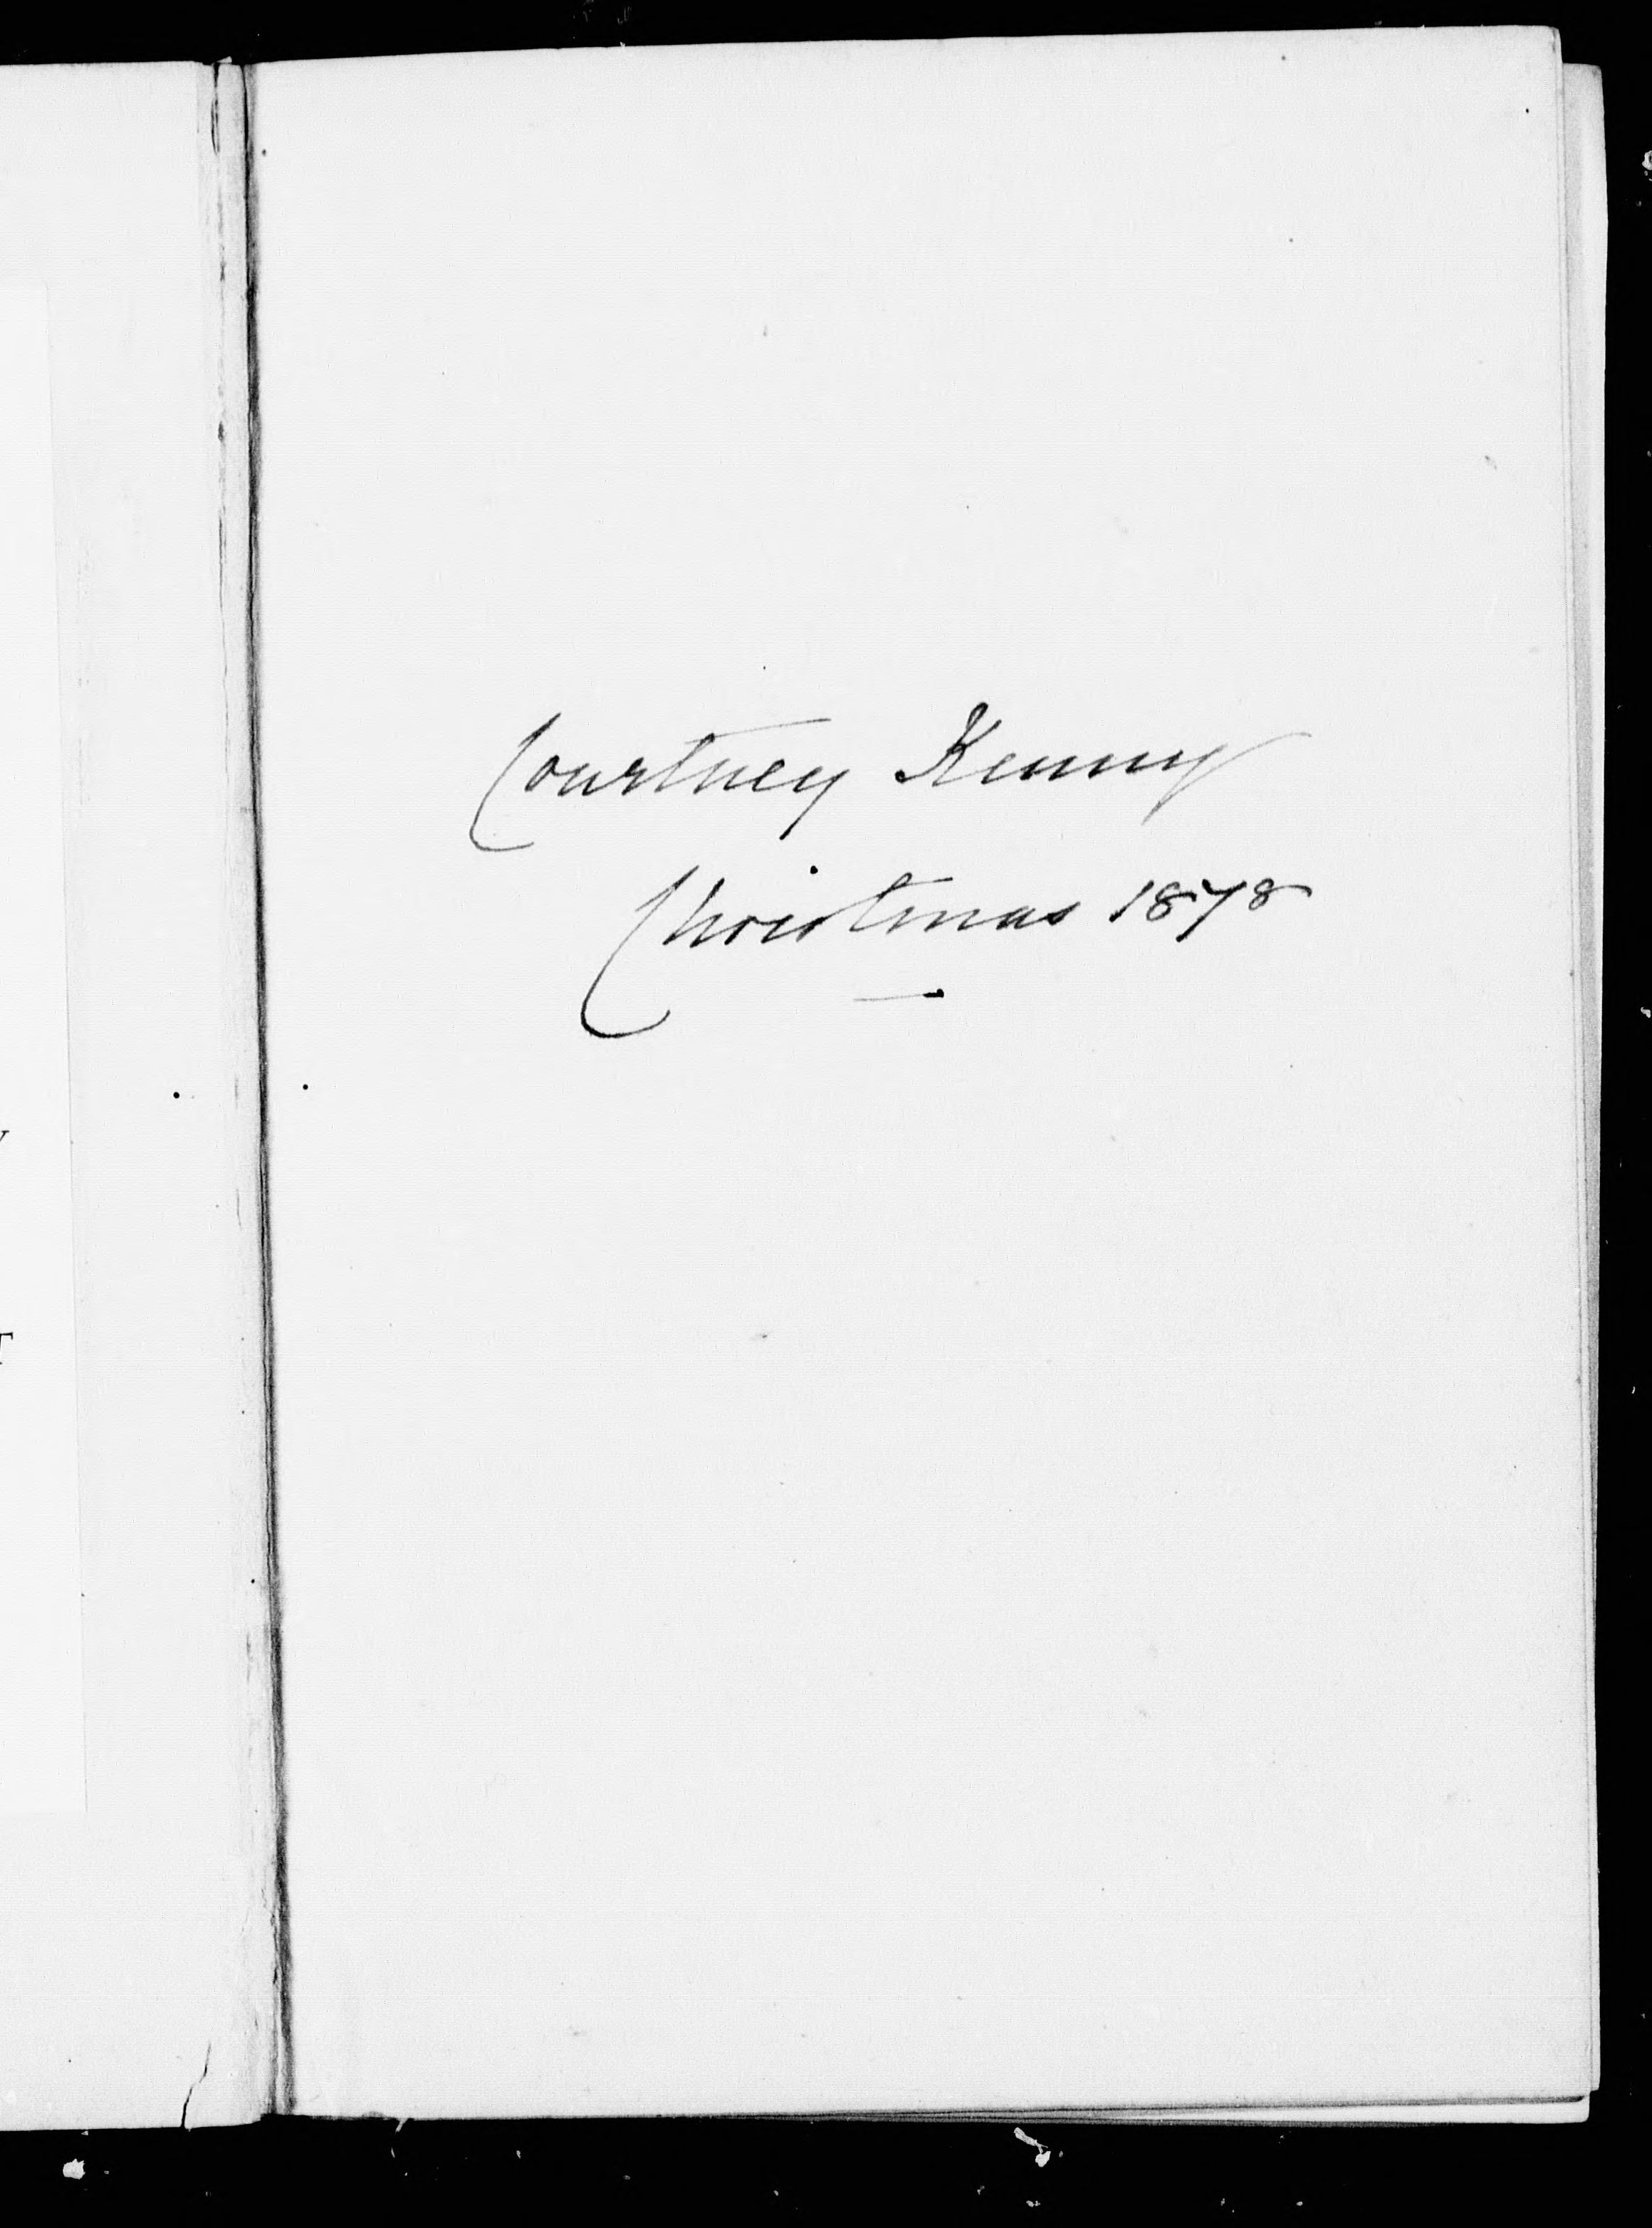 Courtney Kenny
Christmas 1878